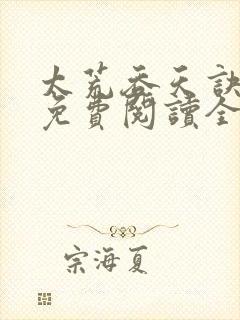 太荒吞天訣
免費閱讀全
宗海夏